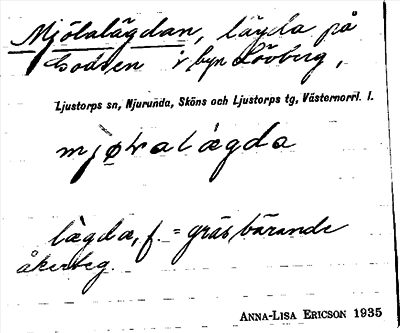 Mjölalägdan, lägda på
Bodsen i byn Lövberg,
Ljustorps sn, Njurunda, Sköns och Ljustorps tg, Västernorrl. l.
mjøḷalǡgda
lägda, f. = gräsbärande
åkerteg.
ANNA-LISA ERICSON 1935